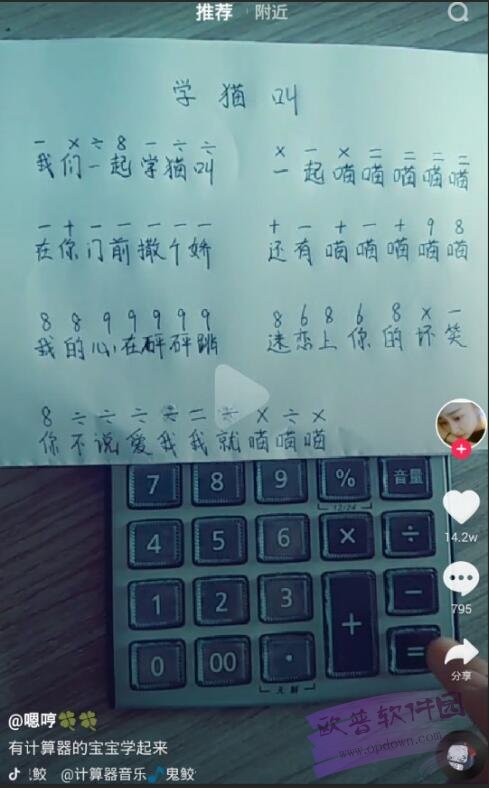 推荐 附近
学猫叫
－ × ÷ 8 － ÷ ÷
我们一起学猫叫
× － × = = = =
一起喵喵喵喵喵
－ + － － － － －
在你门前撒个娇
+ － + － + 9 8
还有喵喵喵喵喵
8 8 9 9 9 9 9
我的心在砰砰跳
8 6 8 6 8 × －
迷恋上你的坏笑
8 ÷ ÷ ÷ = × ÷ ×
你不说爱我我就喵喵喵
7 8 9 % 音量
12/24
4 5 6 × ÷
1 2 3 + －
0 00 · =
14.2w
795
分享
@嗯哼🍀🍀
有计算器的宝宝学起来
鲛 @计算器音乐🎵鬼鲛
欧普软件园
www.opdown.com